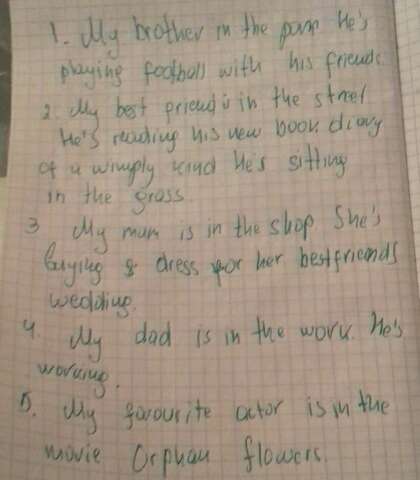 1. My brother in the parr He's
playing football with his friends.
2. My best friend is in the street
He's reading his new book diary
of a wimply kind He's sitting
in the grass
3 My mum is in the shop She's
buying a dress for her bestfriends
wedding.
4. My dad is in the work. He's
working.
5. My favourite actor is in the
movie Orphan flowers.